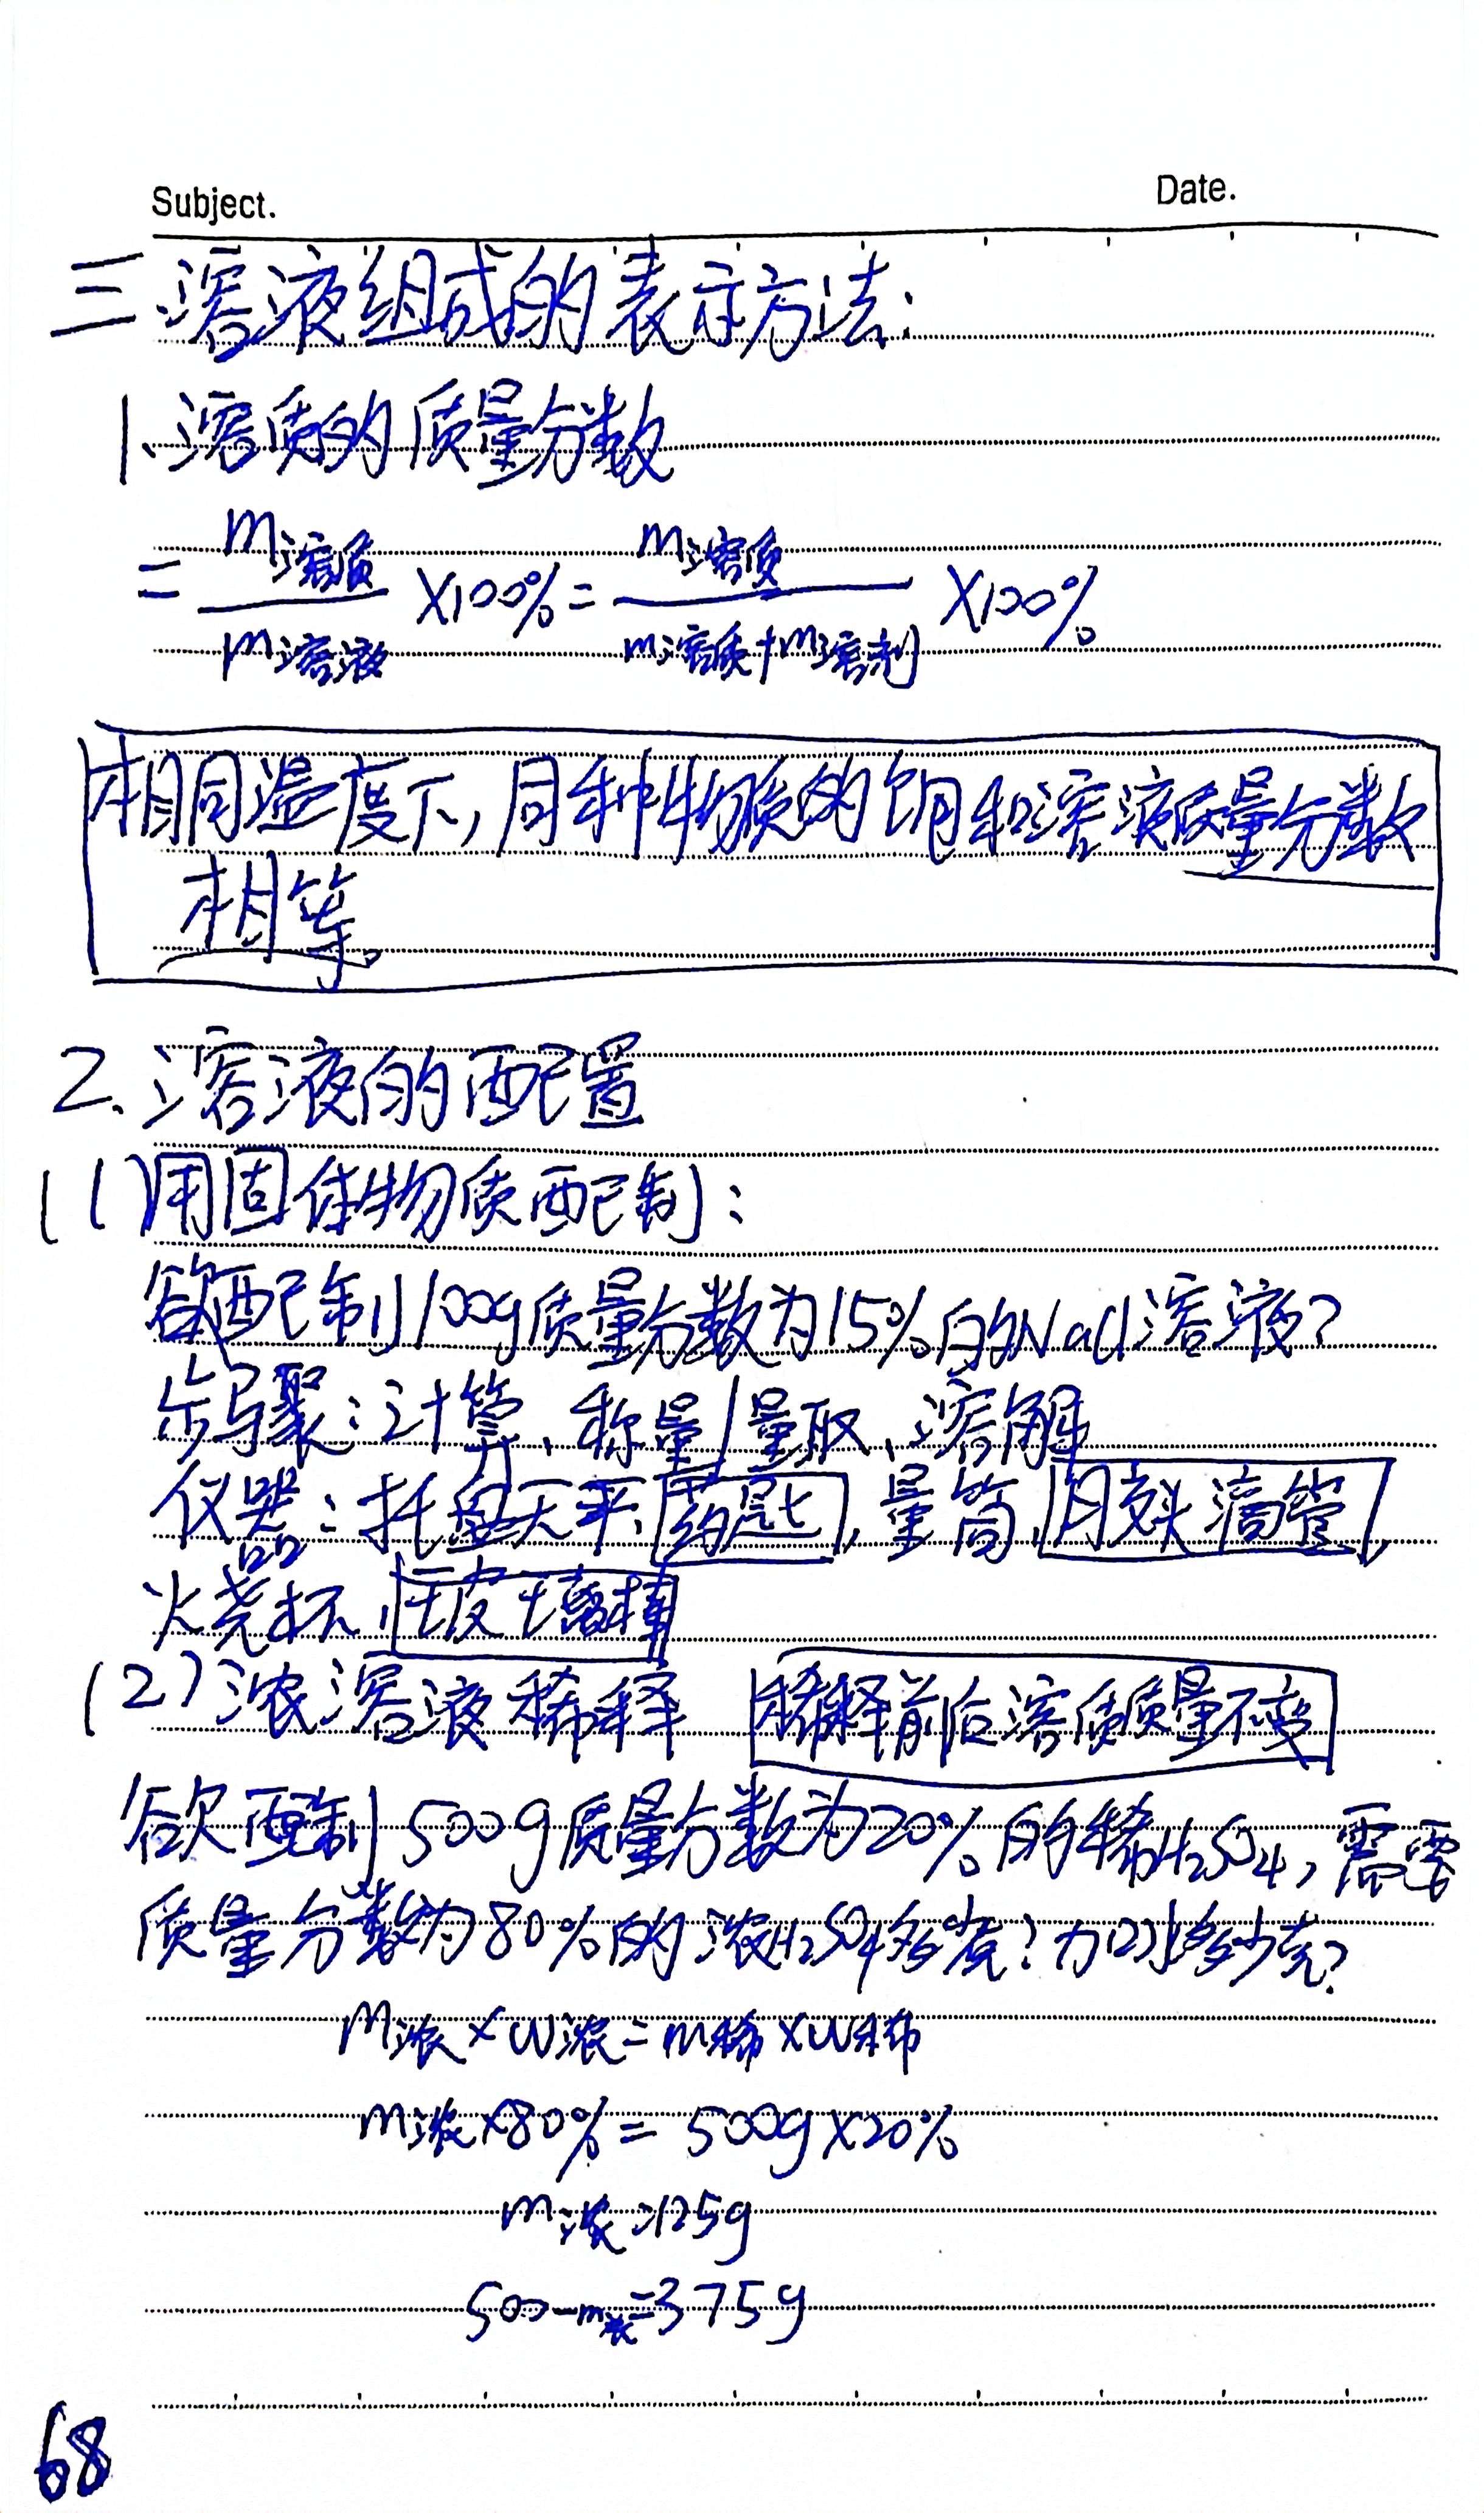 Subject.
Date.
三、溶液组成的表示方法:
1、溶质的质量分数
= m溶质/m溶液 ×100% = m溶质/(m溶质+m溶剂) ×100%
相同温度下,同种物质的饱和溶液质量分数
相等。
2、溶液的配置
(1)用固体物质配制:
欲配制100g质量分数为15%的NaCl溶液?
步骤:计算、称量/量取、溶解
仪器:托盘天平、药匙、量筒、胶头滴管、
烧杯、玻璃棒
(2)浓溶液稀释 稀释前后溶质质量不变
欲配制500g质量分数为20%的稀H₂SO₄,需要
质量分数为80%的浓H₂SO₄多少克?加水多少克?
m浓×w浓=m稀×w稀
m浓×80%=500g×20%
m浓=125g
500-m浓=375g
68